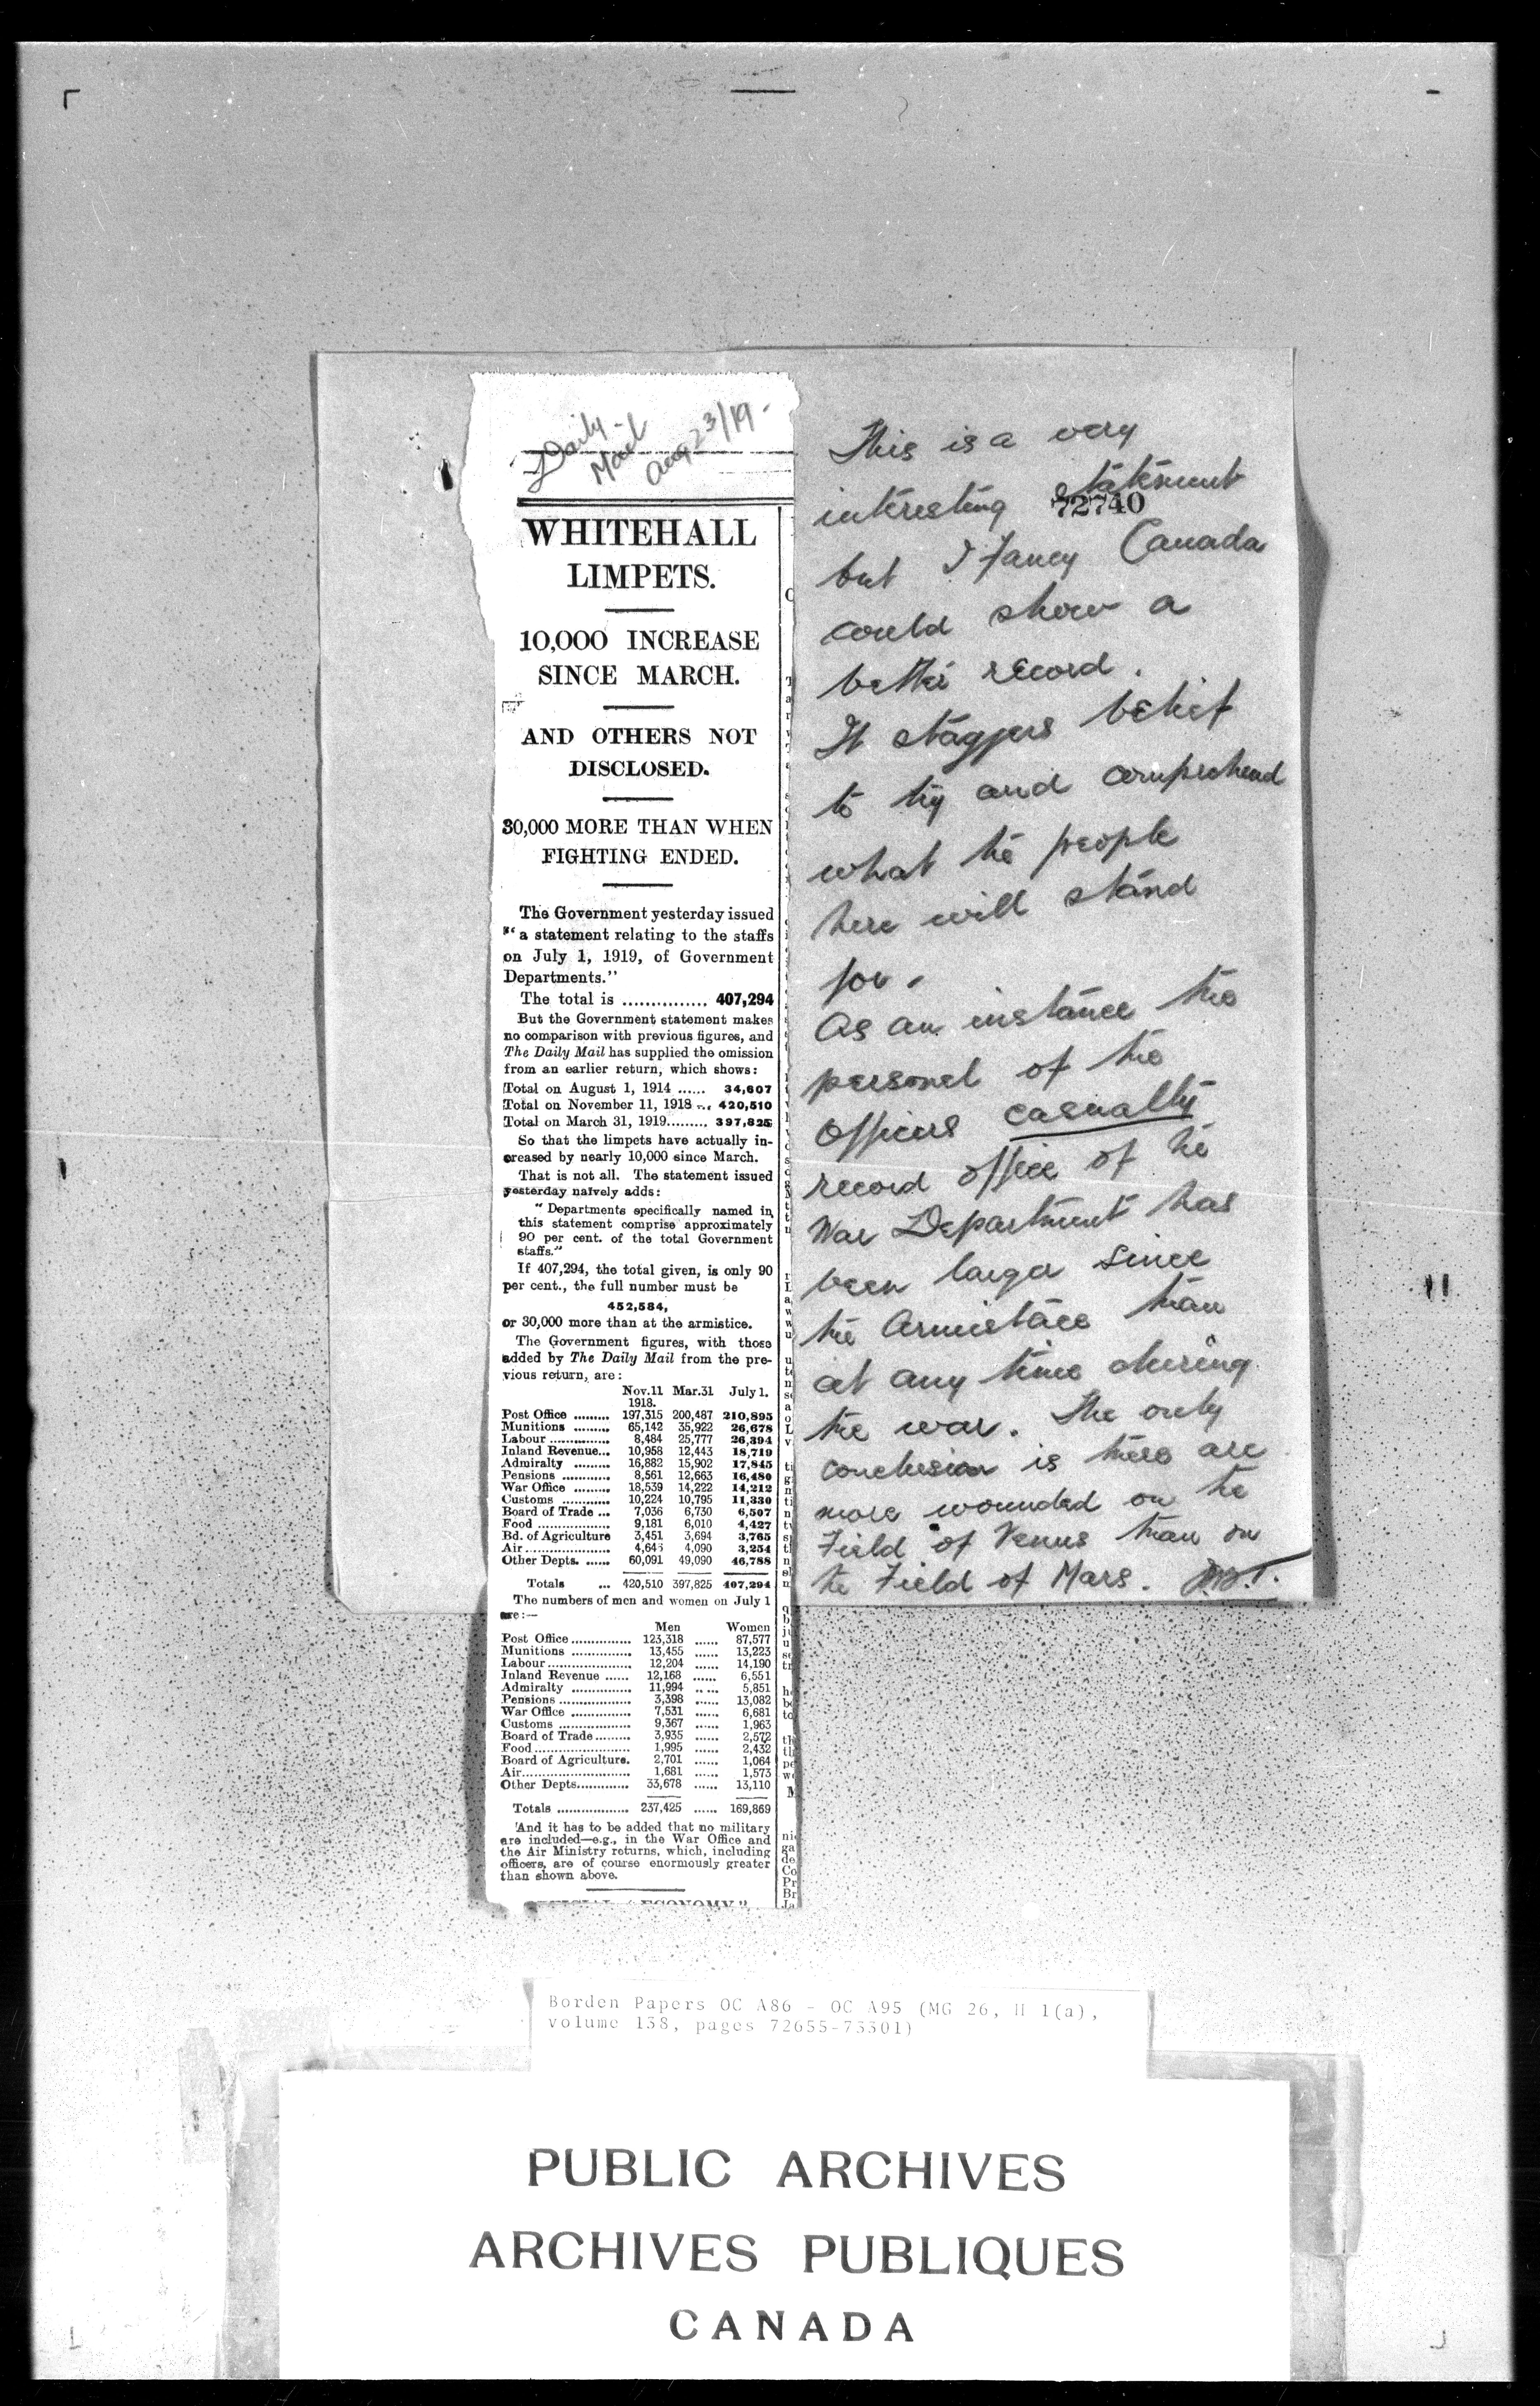 Daily
Mail
Aug 23/19-
WHITEHALL
LIMPETS.
10,000 INCREASE
SINCE MARCH.
AND OTHERS NOT
DISCLOSED.
30,000 MORE THAN WHEN
FIGHTING ENDED.
The Government yesterday issued
"a statement relating to the staffs
on July 1, 1919, of Government
Departments."
The total is ............... 407,294
But the Government statement makes
no comparison with previous figures, and
The Daily Mail has supplied the omission
from an earlier return, which shows:
Total on August 1, 1914 ...... 34,607
Total on November 11, 1918 ... 420,510
Total on March 31, 1919......... 397,825
So that the limpets have actually in-
creased by nearly 10,000 since March.
That is not all. The statement issued
yesterday naïvely adds:
"Departments specifically named in
this statement comprise approximately
90 per cent. of the total Government
staffs."
If 407,294, the total given, is only 90
per cent., the full number must be
452,584,
or 30,000 more than at the armistice.
The Government figures, with those
added by The Daily Mail from the pre-
vious return, are:
Nov.11 Mar.31 July 1.
1918.
Post Office ......... 197,315 200,487 210,895
Munitions ......... 65,142 35,922 26,678
Labour ............... 8,484 25,777 26,394
Inland Revenue... 10,958 12,443 18,719
Admiralty ......... 16,882 15,902 17,845
Pensions ............ 8,561 12,663 16,480
War Office ......... 18,539 14,222 14,212
Customs ............ 10,224 10,795 11,330
Board of Trade ... 7,036 6,730 6,507
Food .................. 9,181 6,010 4,427
Bd. of Agriculture 3,451 3,694 3,765
Air..................... 4,643 4,090 3,254
Other Depts. ...... 60,091 49,090 46,788
Totals ... 420,510 397,825 407,294
The numbers of men and women on July 1
are:—
Men Women
Post Office ............... 123,318 ...... 87,577
Munitions ............... 13,455 ...... 13,223
Labour..................... 12,204 ...... 14,190
Inland Revenue ...... 12,168 ...... 6,551
Admiralty ............... 11,994 ...... 5,851
Pensions .................. 3,398 ...... 13,082
War Office ............... 7,531 ...... 6,681
Customs .................. 9,367 ...... 1,963
Board of Trade......... 3,935 ...... 2,572
Food........................ 1,995 ...... 2,432
Board of Agriculture. 2,701 ...... 1,064
Air........................... 1,681 ...... 1,573
Other Depts............. 33,678 ...... 13,110
Totals .................. 237,425 ...... 169,869
And it has to be added that no military
are included—e.g., in the War Office and
the Air Ministry returns, which, including
officers, are of course enormously greater
than shown above.
This is a very
interesting statement
72740
but I fancy Canada
could show a
better record.
It staggers belief
to try and comprehend
what the people
here will stand
for.
As an instance the
personel of the
Officers casualty
record office of the
War Department has
been larger since
the Armistace than
at any time during
the war. The only
conclusion is there are
more wounded on the
Field of Venus than on
the Field of Mars.
Borden Papers OC A86 - OC A95 (MG 26, H 1(a),
volume 138, pages 72655-73301)
PUBLIC ARCHIVES
ARCHIVES PUBLIQUES
CANADA